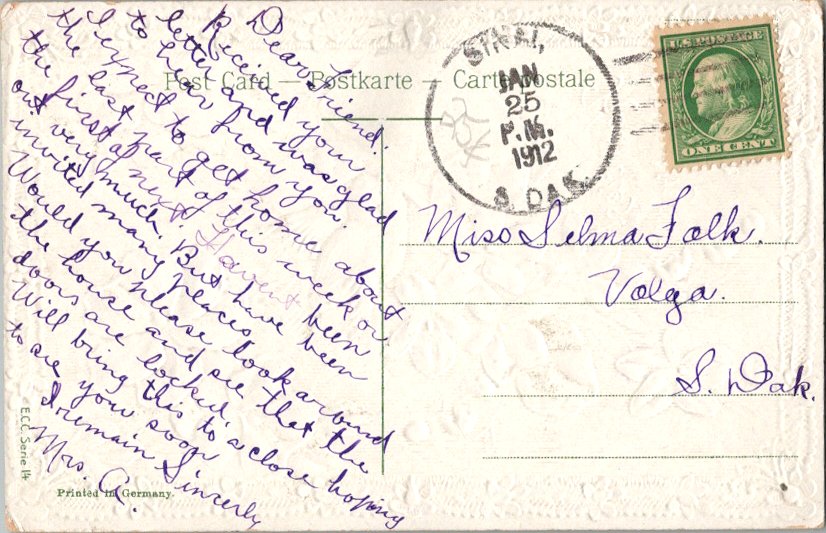 Post Card — Postkarte — Carte postale
SINAI,
JAN
25
P.M.
1912
S. DAK.
U.S. POSTAGE
ONE CENT
Dear Friend.
Received your
letter and was glad
to hear from you.
I expect to get home about
the last part of this week or
the first of next. Havent been
out very much. But have been
invited many places.
Would you please look around
the house and see that the
doors are locked.
Will bring this to a close hoping
to see you soon
I remain Sincerly
Mrs. A.
Miss Selma Falk.
Volga.
S. Dak.
E.C.C. Serie 14
Printed in Germany.